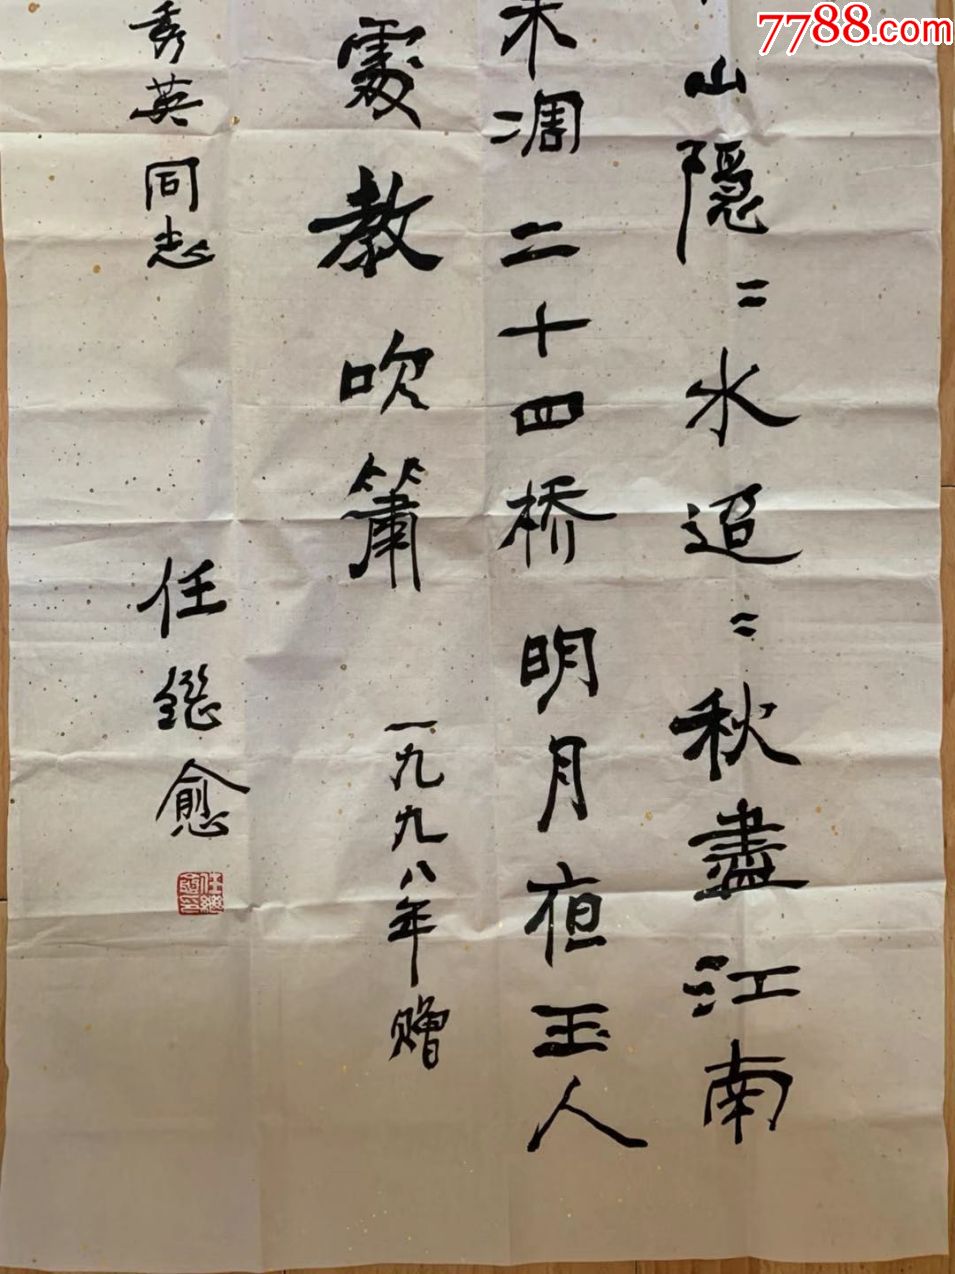 7788.com
山隐=水迢=秋盡江南
未凋二十四桥明月夜玉人
處教吹簫一九九八年赠
秀英同志任继愈
任继愈印